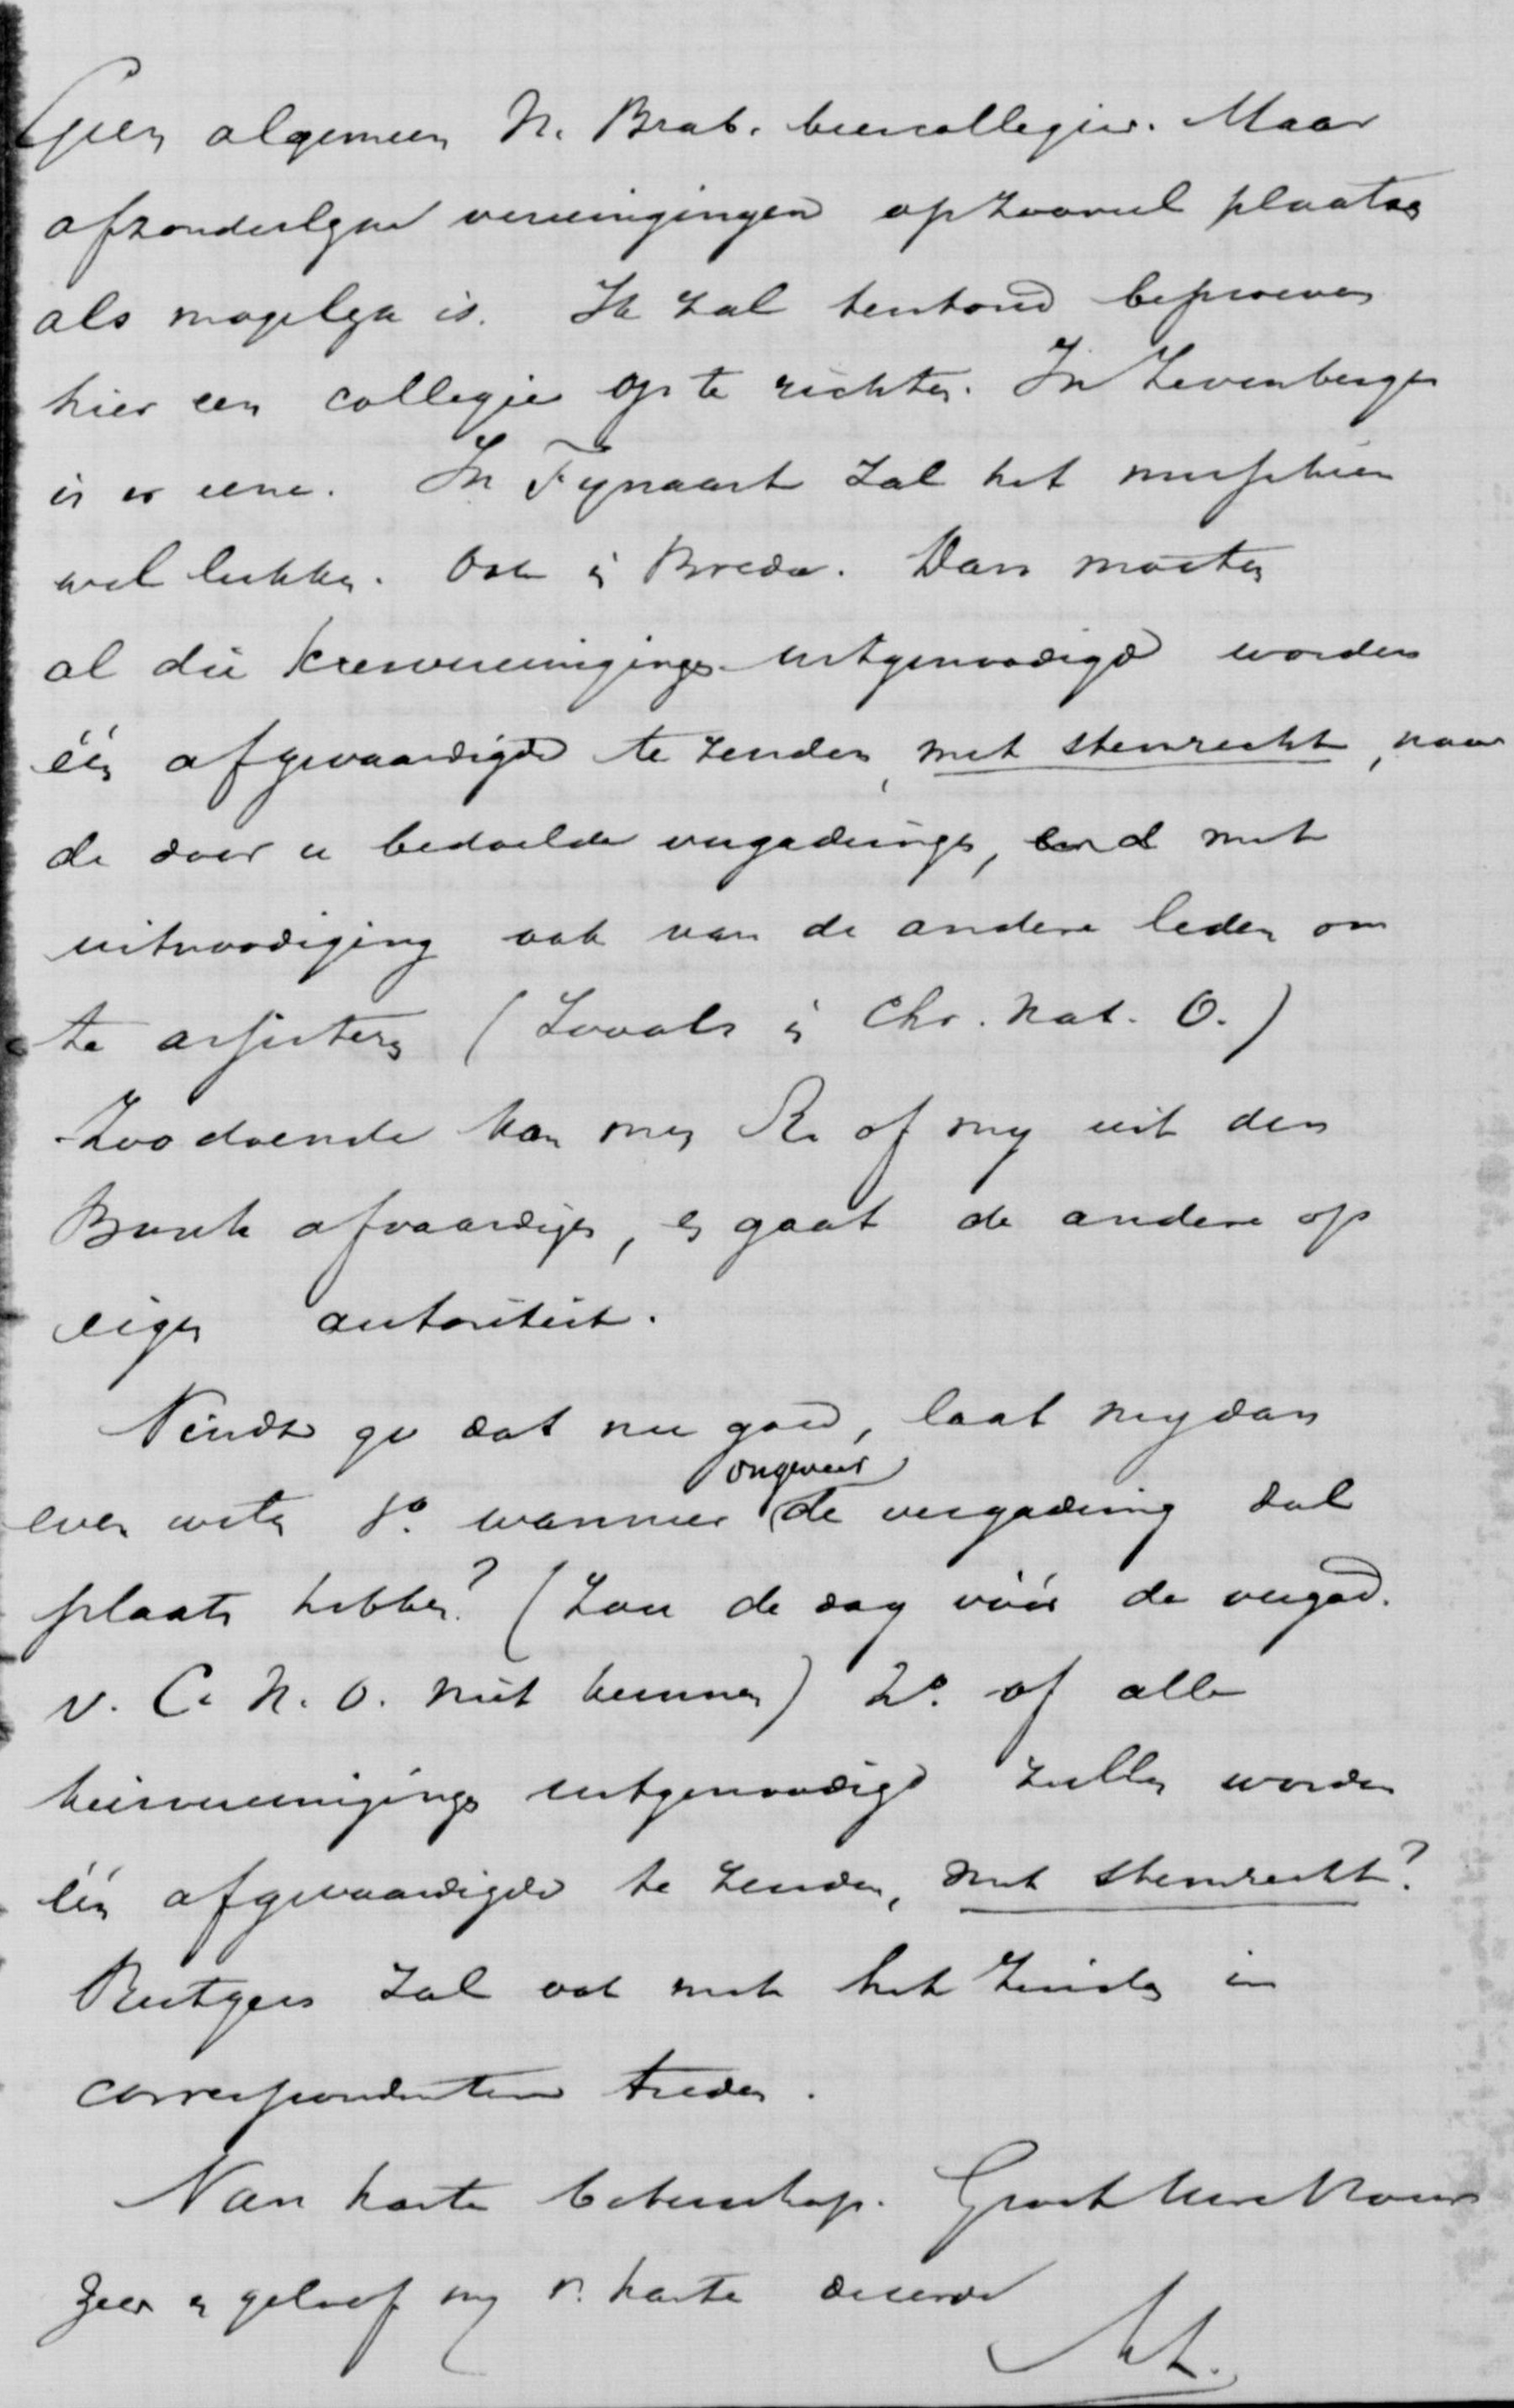 Geen algemeen N. Brab. kiescollegie. Maar
afzonderlyke vereenigingen op zooveel plaatsen
als mogelyk is. Ik zal terstond beproeven
hier een collegie op te richten. In Zevenbergen
is er eene. In Fynaart zal het misschien
wel lukken. Ook in Breda. Dan moeten
al die kiesvereenigingen uitgenoodigd worden
één afgevaardigde te zenden, met stemrecht, naar
de door u bedoelde vergadering, met
uitnoodiging ook van de andere leden om
te assisteren (Zooals in Chr. Nat. O.)
Zoodoende kan men R. of my uit den
Briel afvaardigen, en gaat de andere op
eigen autoriteit.
Vindt ge dat nu goed, laat my dan
even weten 1o. wanneer ongeveer de vergadering zal
plaats hebben? (Zou de dag vóór de vergad.
v. C. N. O. niet kunnen) 2o. of alle
kiesvereenigingen uitgenoodigd zullen worden
één afgevaardigde te zenden, met stemrecht?
Rutgers zal ook met het Zuiden in
correspondentie treden.
Van harte beterschap. Groet Mevrouw
zeer en geloof my v. harte